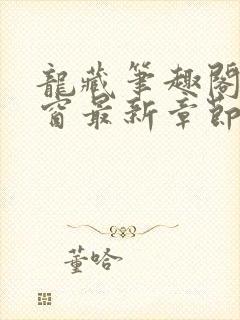 龍藏筆趣閣
窗最新章節
董哈